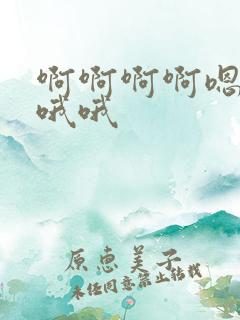 啊啊啊啊嗯
哦哦
原惠美子
未任同意禁止转载